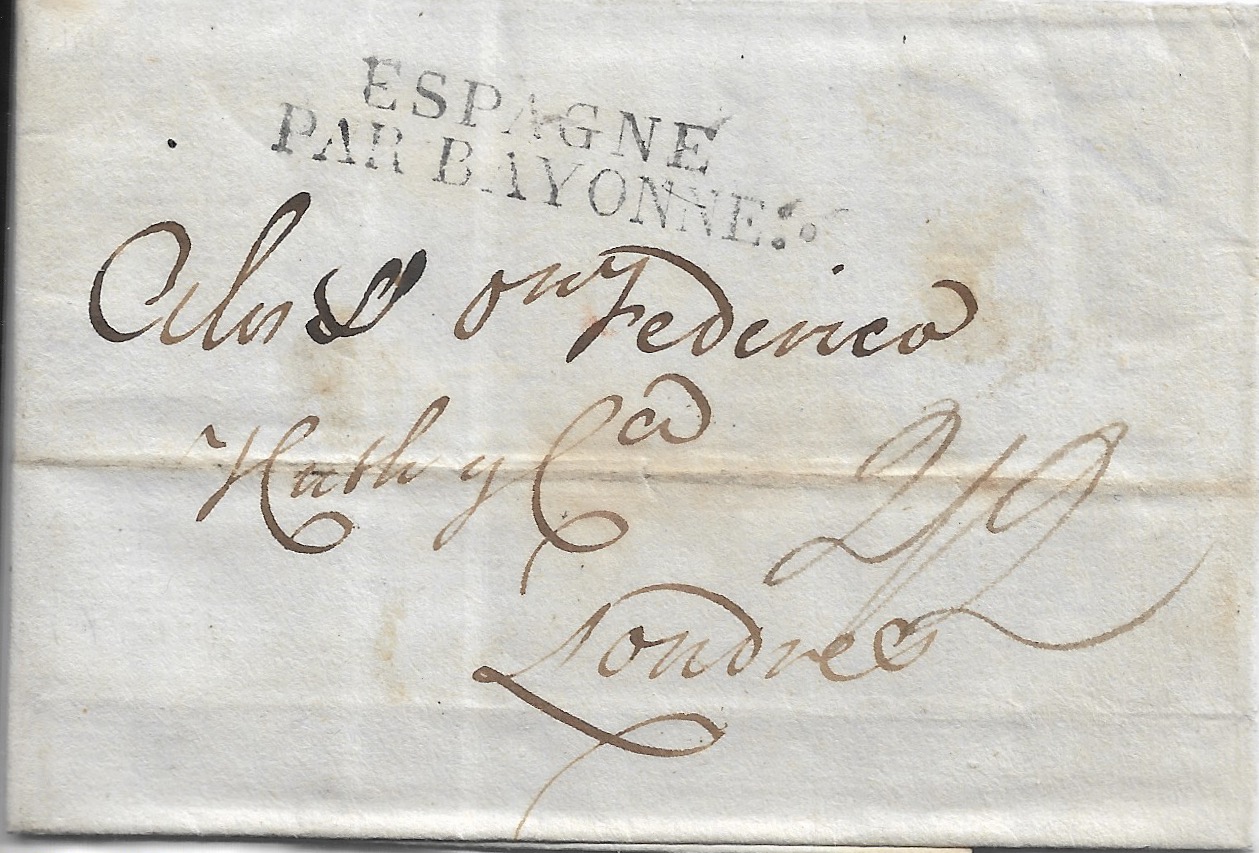 ESPAGNE
PAR BAYONNE.
Federico
Huth y Cª
2/2
Londres